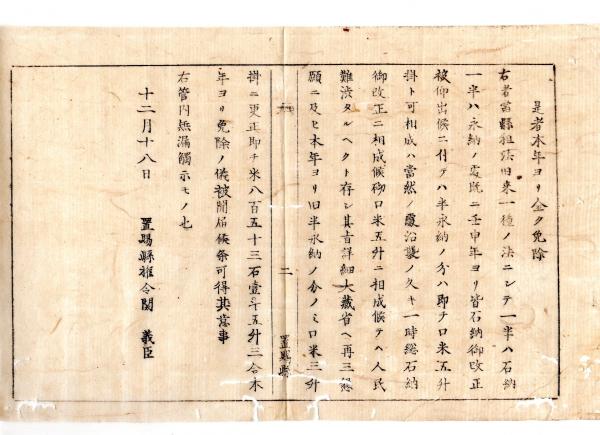 是者本年ヨリ全ク免除
右者當縣租法旧来一種ノ法ニシテ一半ハ石納
一半ハ永納ノ處既ニ壬申年ヨリ皆石納御改正
被仰出候ニ付テハ半永納ノ分ハ即チ口米五升
掛ト可相成ハ當然ノ處治襲ノ久キ一時総石納
御改正ニ相成候砌口米五升ニ相成候テハ人民
難渋タルヘクト存シ其旨詳細大蔵省ヘ再三懇
願ニ及ヒ本年ヨリ旧半永納ノ分ノミ口米三升
二
置賜縣
掛ニ更正即チ米八百五十三石壹斗五升三合本
年ヨリ免除ノ儀被聞届候条可得其意事
右管内無漏觸示モノ也
十二月十八日
置賜縣権令関 義臣